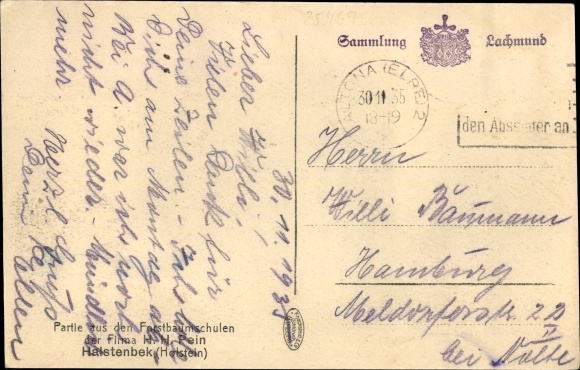 Sammlung Lachmund
ALTONA (ELBE) 2
30.11.35
18-19
den Absender an
Herrn
Willi Baumann
Hamburg
Meldorferstr. 22
II
bei Nolte
30.11.1935
Lieber Willi!
Vielen Dank für
Deine Zeilen. - Ich
Dich am Montag
Bei A. war ich wohl
nicht wieder. - Mündlich
mehr. Herzl. Gruß
Dein
Partie aus den Forstbaumschulen
der Firma H. H. Pein
Halstenbek (Holstein)